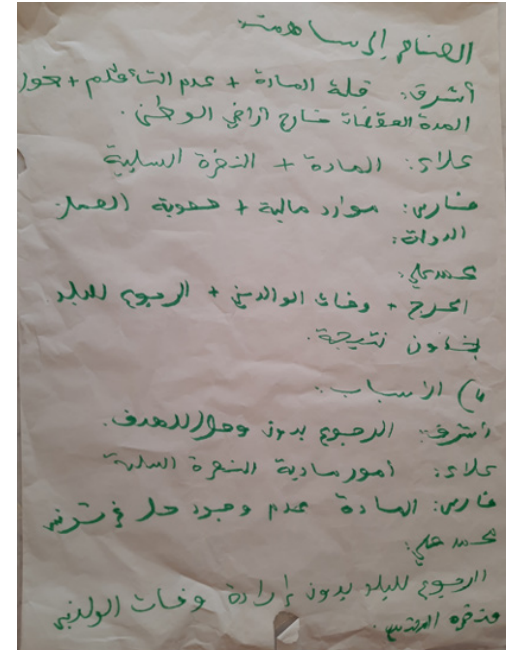 العناصر إلي ساهمت:
أشرق: قلة المادة + عدم التأقلم +
المدة المقضاة خارج أراضي الوطني.
علاء: المادة + النضرة السلبية
فارس: موارد مالية + صعوبة العمل
محمد علي:
الحرج + وفات الوالدين + الرجوع للبلد
بدون نتيجة.
الأسباب:
أشرق: الرجوع بدون وصول للهدف.
علاء: أمور مادية النضرة السلبية
فارس: المادة عدم وجود حل في تونس
محمد علي:
الرجوع للبلد بدون إرادة وفات الولدين